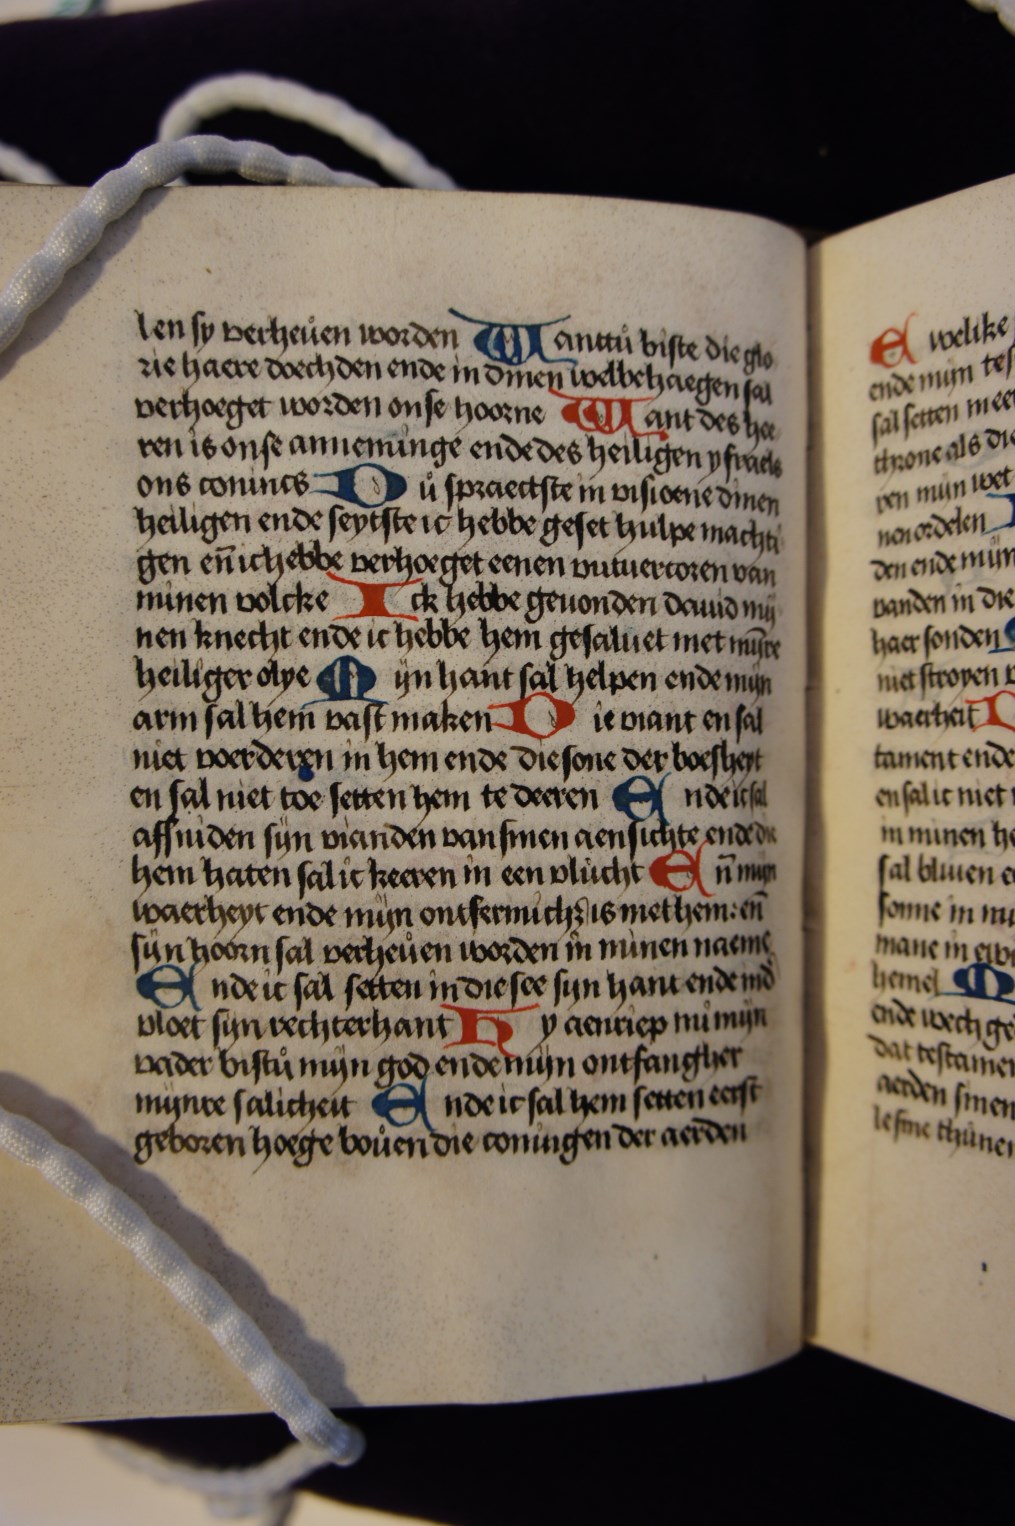 len sy verheuen worden Wanttu biste die glo
rie haere doechden ende in dinen welbehaegen sal
verhoeget worden onse hoorne Want des hee
ren is onse anneminge ende des heiligen ysraels
ons conincs Du spraectste in visioene dinen
heiligen ende seytste ic hebbe geset hulpe machti
gen en̄ ic hebbe verhoeget eenen vutuercoren van
minen volcke Ick hebbe geuonden dauid mij
nen knecht ende ic hebbe hem gesaluet met mijn̄re
heiliger olye Mijn hant sal helpen ende mijn
arm sal hem vast maken Die viant en sal
niet voerderen in hem ende die sone der boesheyt
en sal niet toe setten hem te deeren Ende ic sal
afsniden sijn vianden van sinen aensichte ende die
hem haten sal ic keeren in een vlucht En̄ mijn
waerheyt ende mijn ontfermich; is met hem: en̄
sijn hoorn sal verheuen worden in minen naeme
Ende ic sal setten in die see sijn hant ende in d̄
vloet sijn rechterhant Hy aenriep mi mijn
vader bistu mijn god ende mijn ontfangher
mijnre salicheit Ende ic sal hem setten eerst
geboren hoege bouen die coningen der aerden
Ewelike
ende mijn tes
sal setten mee
throne als die
ren mijn wet
nen ordelen
den ende mijn
vanden in die
haer sonden
niet stroyen
waerheit D
tament ende
en sal ic niet
in minen he
sal bliuen e
sonne in mi
mane in ewi
hemel M
ende wech ge
dat testamen
aerden sinen